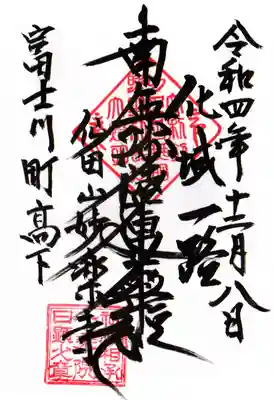 令和四年十二月八日
化城一路
南無妙法蓮華経
田山妙楽寺
富士川町高下